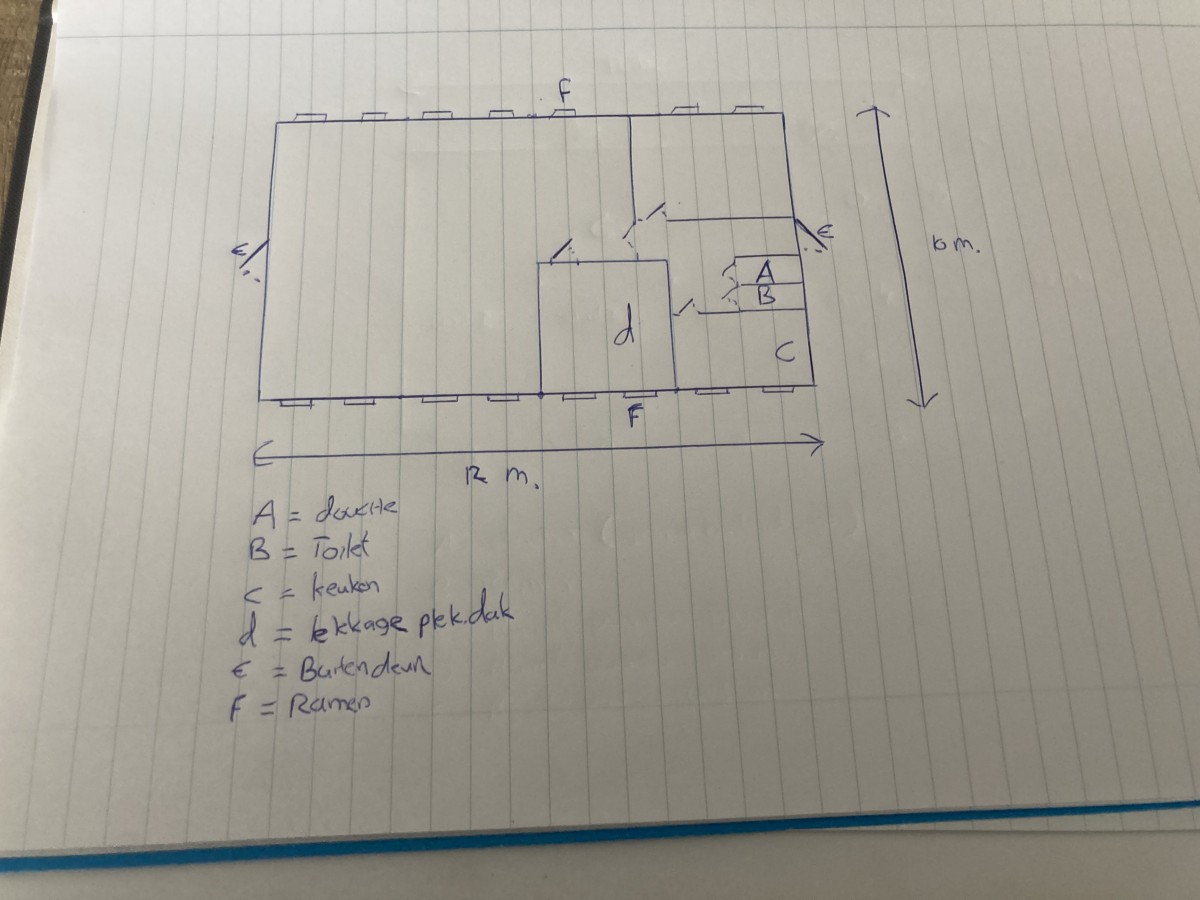 F
E
E
10 m.
A
B
d
C
F
12 m.
A = douche
B = Toilet
C = keuken
d = lekkage plek.dak
E = Buitendeur
F = Ramen